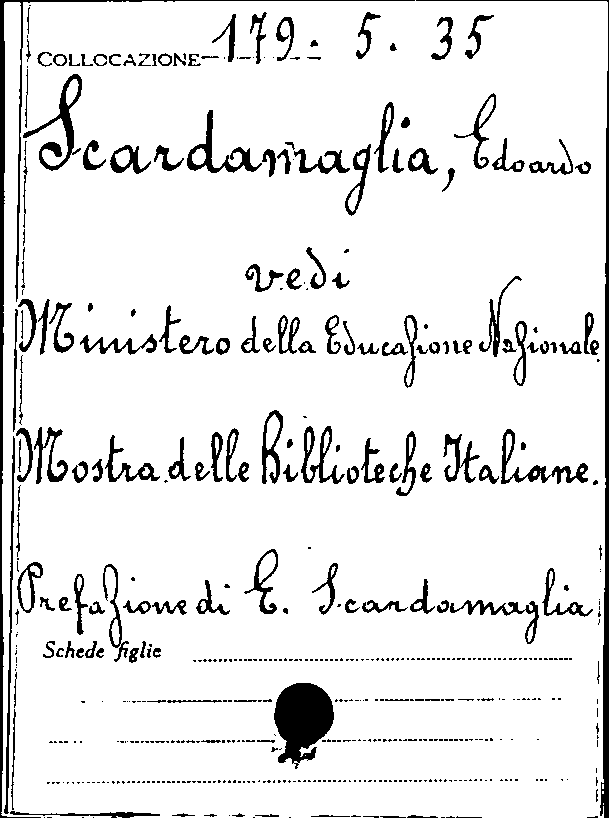 COLLOCAZIONE 179. 5. 35
Scardamaglia, Edoardo
vedi
Ministero della Educazione Nazionale
Mostra delle Biblioteche Italiane.
Prefazione di E. Scardamaglia
Schede figlie